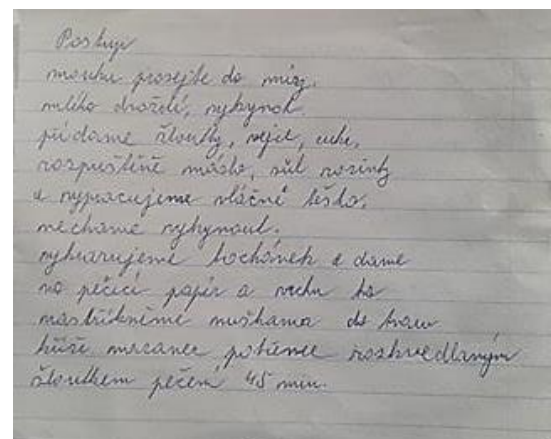 Postup
mouku prosejte do mísy.
mléko droždí, vykynout.
přidáme žloutky, vejce, cukr,
rozpuštěné máslo, sůl rozinky
a vypracujeme vláčné těsto,
necháme vykynout.
vytvarujeme bochánek a dáme
na pečící papír a vrchu ho
nastřihneme nůžkama do tvaru
kříže mazanec potřeme rozkvedlaným
žloutkem pečení 45 min.